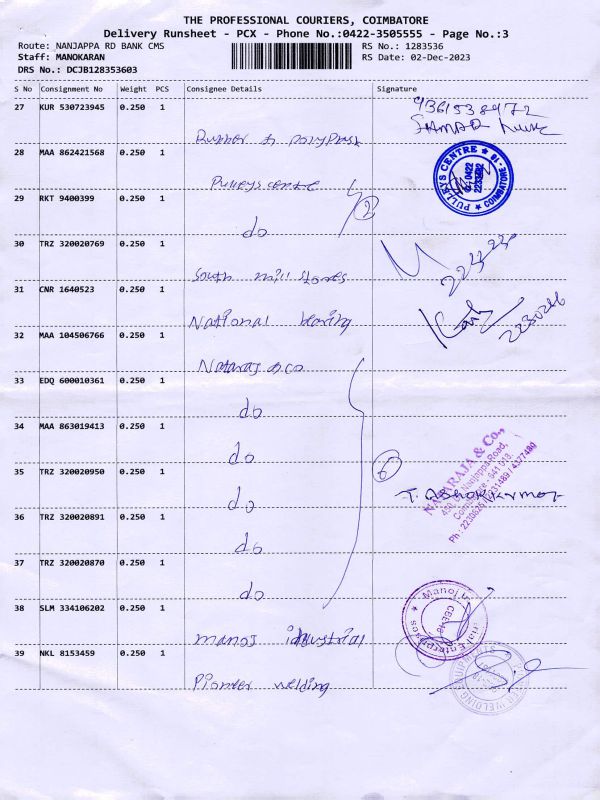 THE PROFESSIONAL COURIERS, COIMBATORE
Delivery Runsheet - PCX - Phone No.:0422-3505555 - Page No.:3
Route: NANJAPPA RD BANK CMS RS No.: 1283536
Staff: MANOKARAN RS Date: 02-Dec-2023
DRS No.: DCJB128353603
S No Consignment No Weight PCS Consignee Details Signature
27 KUR 530723945 0.250 1
9361538972
Rubber & polyplast
28 MAA 862421568 0.250 1
PULLEYS CENTRE
COIMBATORE
0422
Pulleys centre
29 RKT 9400399 0.250 1
2
do
30 TRZ 320020769 0.250 1
South mill stores
31 CNR 1640523 0.250 1
2230266
National bearing
32 MAA 104506766 0.250 1
Nataraj & co
33 EDQ 600010361 0.250 1
do
34 MAA 863019413 0.250 1
do
NATARAJA & Co.,
Nanjappa Road,
Coimbatore - 641 018.
35 TRZ 320020950 0.250 1
6
T. ASHOKKUMAR
do
36 TRZ 320020891 0.250 1
do
37 TRZ 320020870 0.250 1
do
38 SLM 334106202 0.250 1
Manoj industrial
39 NKL 8153459 0.250 1
Pioneer welding